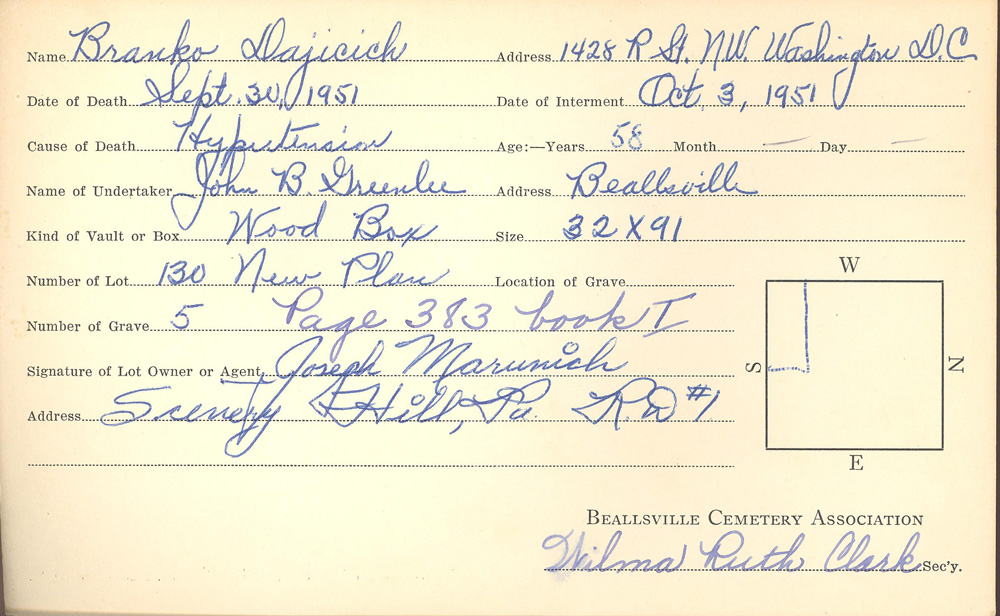 Name Branko Dajicich Address 1428 R St. N.W. Washington D.C
Date of Death Sept. 30, 1951 Date of Interment Oct, 3, 1951
Cause of Death Hypertension Age:—Years 58 Month — Day —
Name of Undertaker John B Greenlee Address Beallsville
Kind of Vault or Box Wood Box Size 32 X 91
Number of Lot 130 New Plan Location of Grave
Number of Grave 5 Page 383 book I
Signature of Lot Owner or Agent Joseph Marunich
Address Scenery Hill, Pa. R.D #1
W
S
N
E
BEALLSVILLE CEMETERY ASSOCIATION
Wilma Ruth Clark Sec'y.